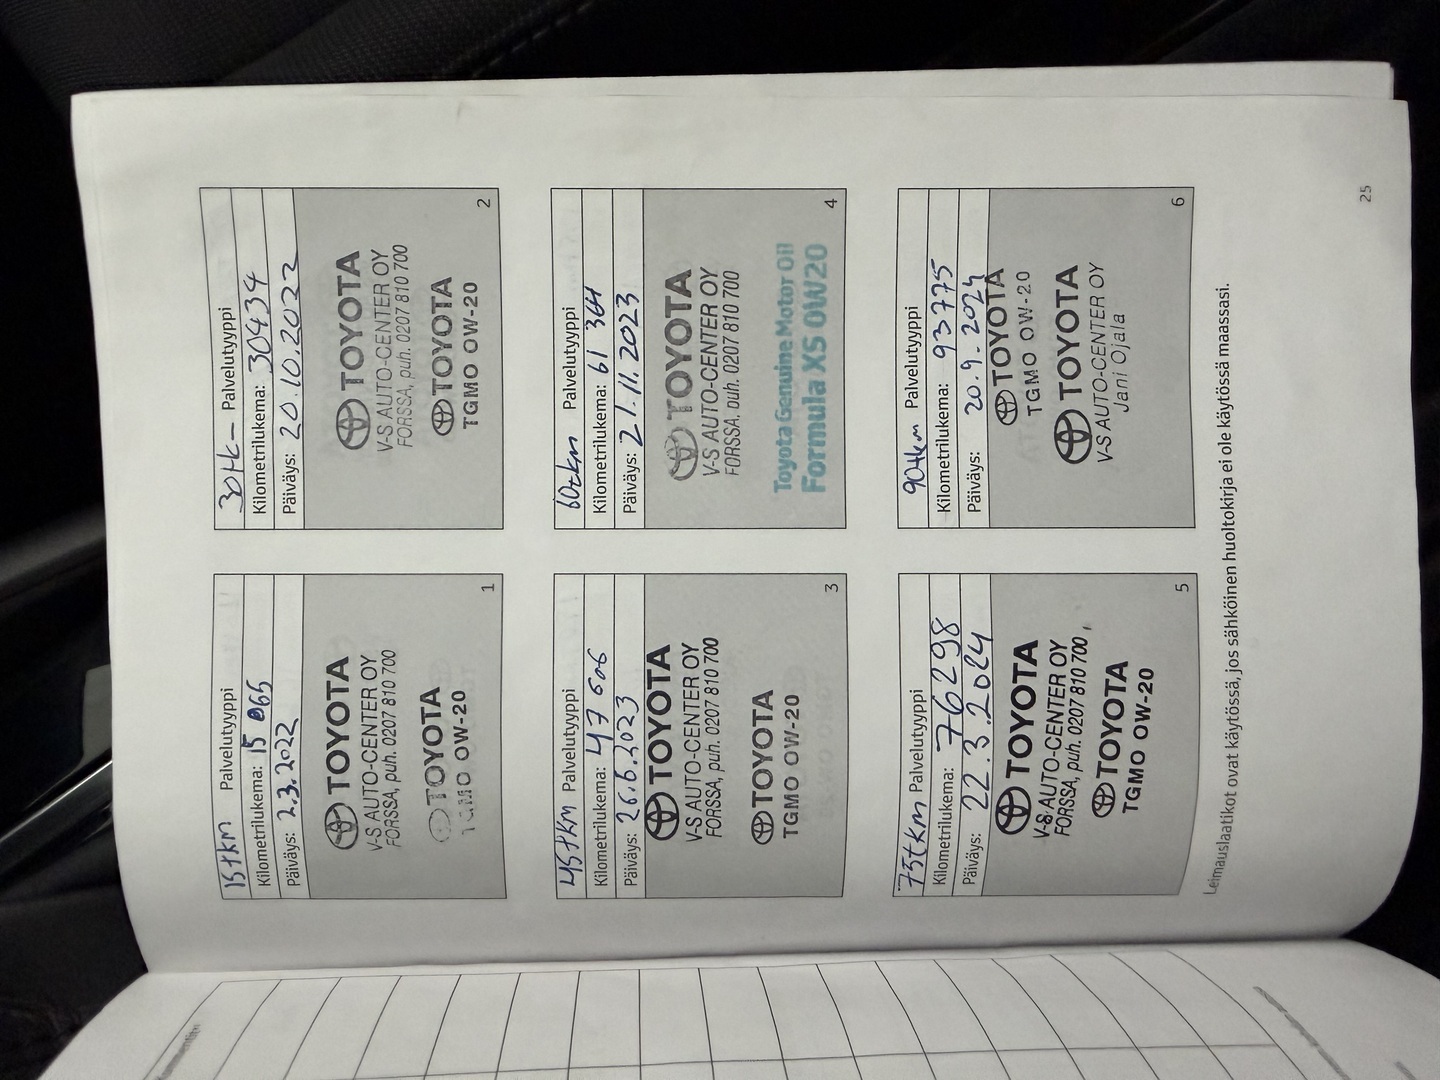 15tkm Palvelutyyppi
Kilometrilukema: 15 065
Päiväys: 2.3.2022
TOYOTA
V-S AUTO-CENTER OY
FORSSA, puh. 0207 810 700
TOYOTA
TGMO OW-20
1
30tk- Palvelutyyppi
Kilometrilukema: 30434
Päiväys: 20.10.2022
TOYOTA
V-S AUTO-CENTER OY
FORSSA, puh. 0207 810 700
TOYOTA
TGMO OW-20
2
45tkm Palvelutyyppi
Kilometrilukema: 47 606
Päiväys: 26.6.2023
TOYOTA
V-S AUTO-CENTER OY
FORSSA, puh. 0207 810 700
TOYOTA
TGMO OW-20
3
60tkm Palvelutyyppi
Kilometrilukema: 61 364
Päiväys: 21.11.2023
TOYOTA
V-S AUTO-CENTER OY
FORSSA, puh. 0207 810 700
Toyota Genuine Motor Oil
Formula XS 0W20
4
75tkm Palvelutyyppi
Kilometrilukema: 76298
Päiväys: 22.3.2024
TOYOTA
V-S AUTO-CENTER OY
FORSSA, puh. 0207 810 700
TOYOTA
TGMO OW-20
5
90tkm Palvelutyyppi
Kilometrilukema: 93775
Päiväys: 20.9.2024
TOYOTA
TGMO OW-20
TOYOTA
V-S AUTO-CENTER OY
Jani Ojala
6
Leimauslaatikot ovat käytössä, jos sähköinen huoltokirja ei ole käytössä maassasi.
25